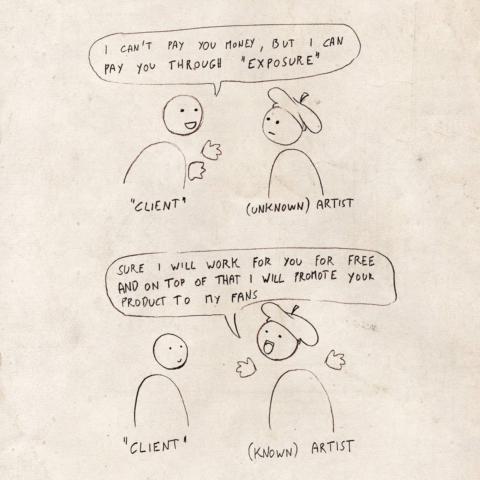 I CAN'T PAY YOU MONEY, BUT I CAN
PAY YOU THROUGH "EXPOSURE"
"CLIENT"
(UNKNOWN) ARTIST
SURE I WILL WORK FOR YOU FOR FREE
AND ON TOP OF THAT I WILL PROMOTE YOUR
PRODUCT TO MY FANS
"CLIENT"
(KNOWN) ARTIST